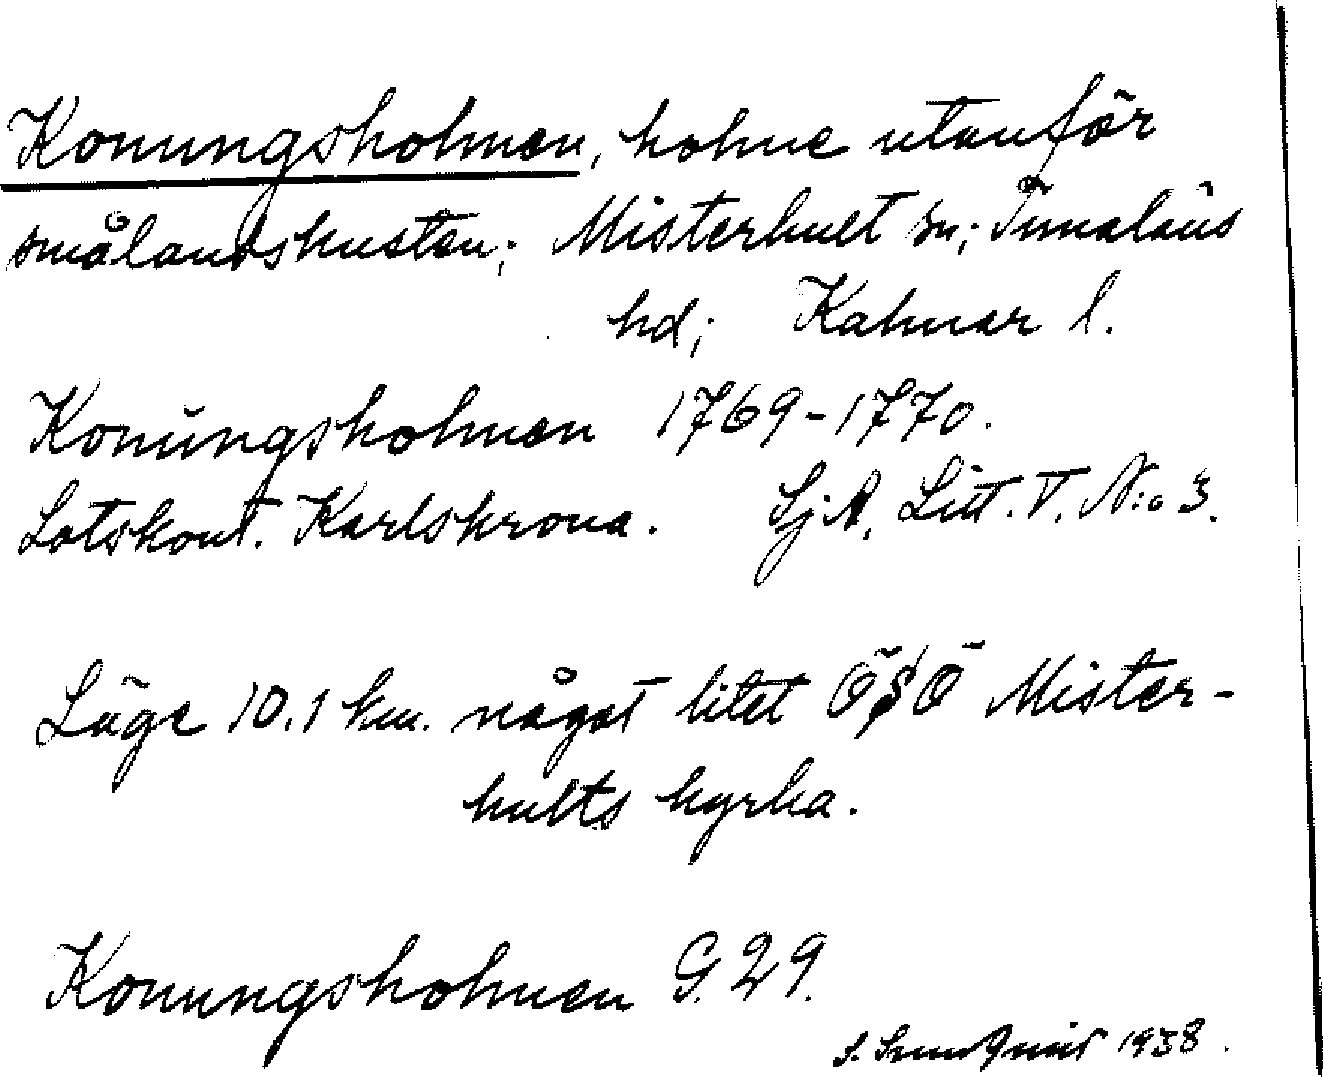 Konungsholmen, holme utanför
smålandskusten; Misterhult sn; Tunaläns
hd; Kalmar l.
Konŭngsholmen 1769-1770.
Lotskont. Karlskrona. Sj.A. Litt. V. N:o 3.
Läge 10.1 km. något litet ÖSÖ Mister-
hults kyrka.
Konungsholmen G. 29.
S. 1938.